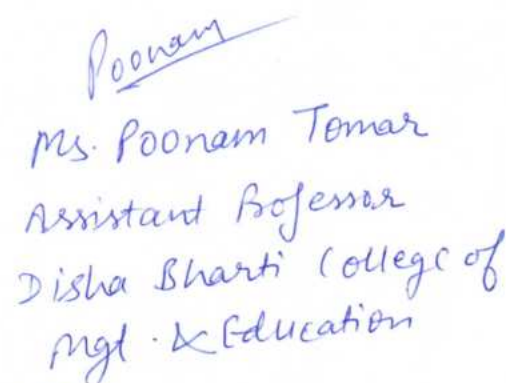 Poonam
Ms. Poonam Tomar
Assistant Professor
Disha Bharti College of
Mgt. & Education